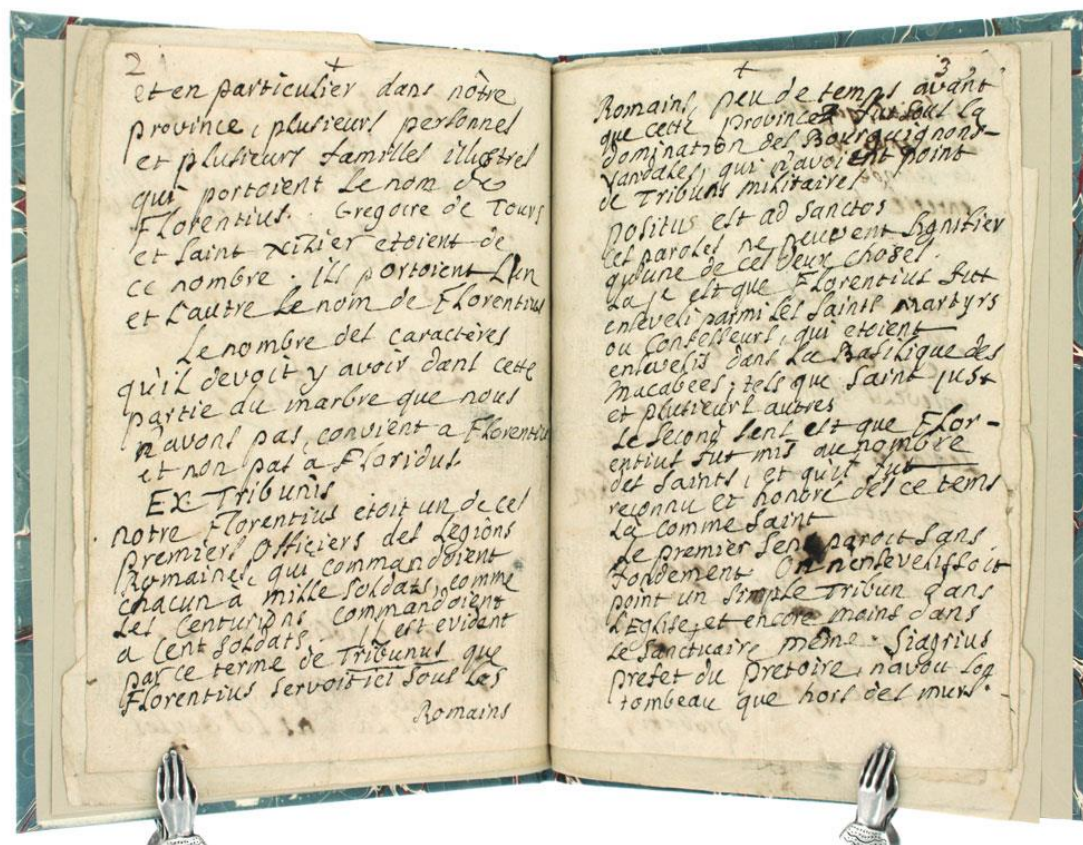 2 +
et en particulier dans nôtre
province, plusieurs personnes
et plusieurs familles illustres
qui portoient le nom de
Florentius. Gregoire de Tours
et saint Nizier etoient de
ce nombre. ils portoient L'un
et L'autre le nom de Florentius
Le nombre des caractères
qu'il devoit y avoir dans cette
partie du marbre que nous
n'avons pas, convient a Florentius
et non pas a Floridus.
EX Tribunis
notre Florentius etoit un de ces
premiers Officiers des Legions
Romaines, qui commandoient
chacun à mille soldats, comme
Les Centurions commandoient
a cent soldats. il est evident
par ce terme de Tribunus que
Florentius servoit ici sous les
Romains
+ 3
Romains, peu de temps avant
que cette province fut sous la
domination des Bourguignons-
Vandales, qui n'avoient point
de Tribuns militaires
positus est ad sanctos
ces paroles ne peuvent signifier
qu'une de ces deux choses.
La Ie est que Florentius fut
enseveli parmi les saints Martyrs
ou Confesseurs, qui etoient
ensevelis dans La Basilique des
Macabées; tels que saint just
et plusieurs autres
Le second sens est que Flor-
entius fut mis au nombre
des saints, et qu'il fut
reconnu et honoré des ce tems
La comme saint
Le premier sens paroit sans
fondement On n'ensevelissoit
point un simple Tribun dans
L'Eglise, et encore moins dans
Le sanctuaire même. Siagrius
prefet du Pretoire, n'avou son
tombeau que hors des murs.